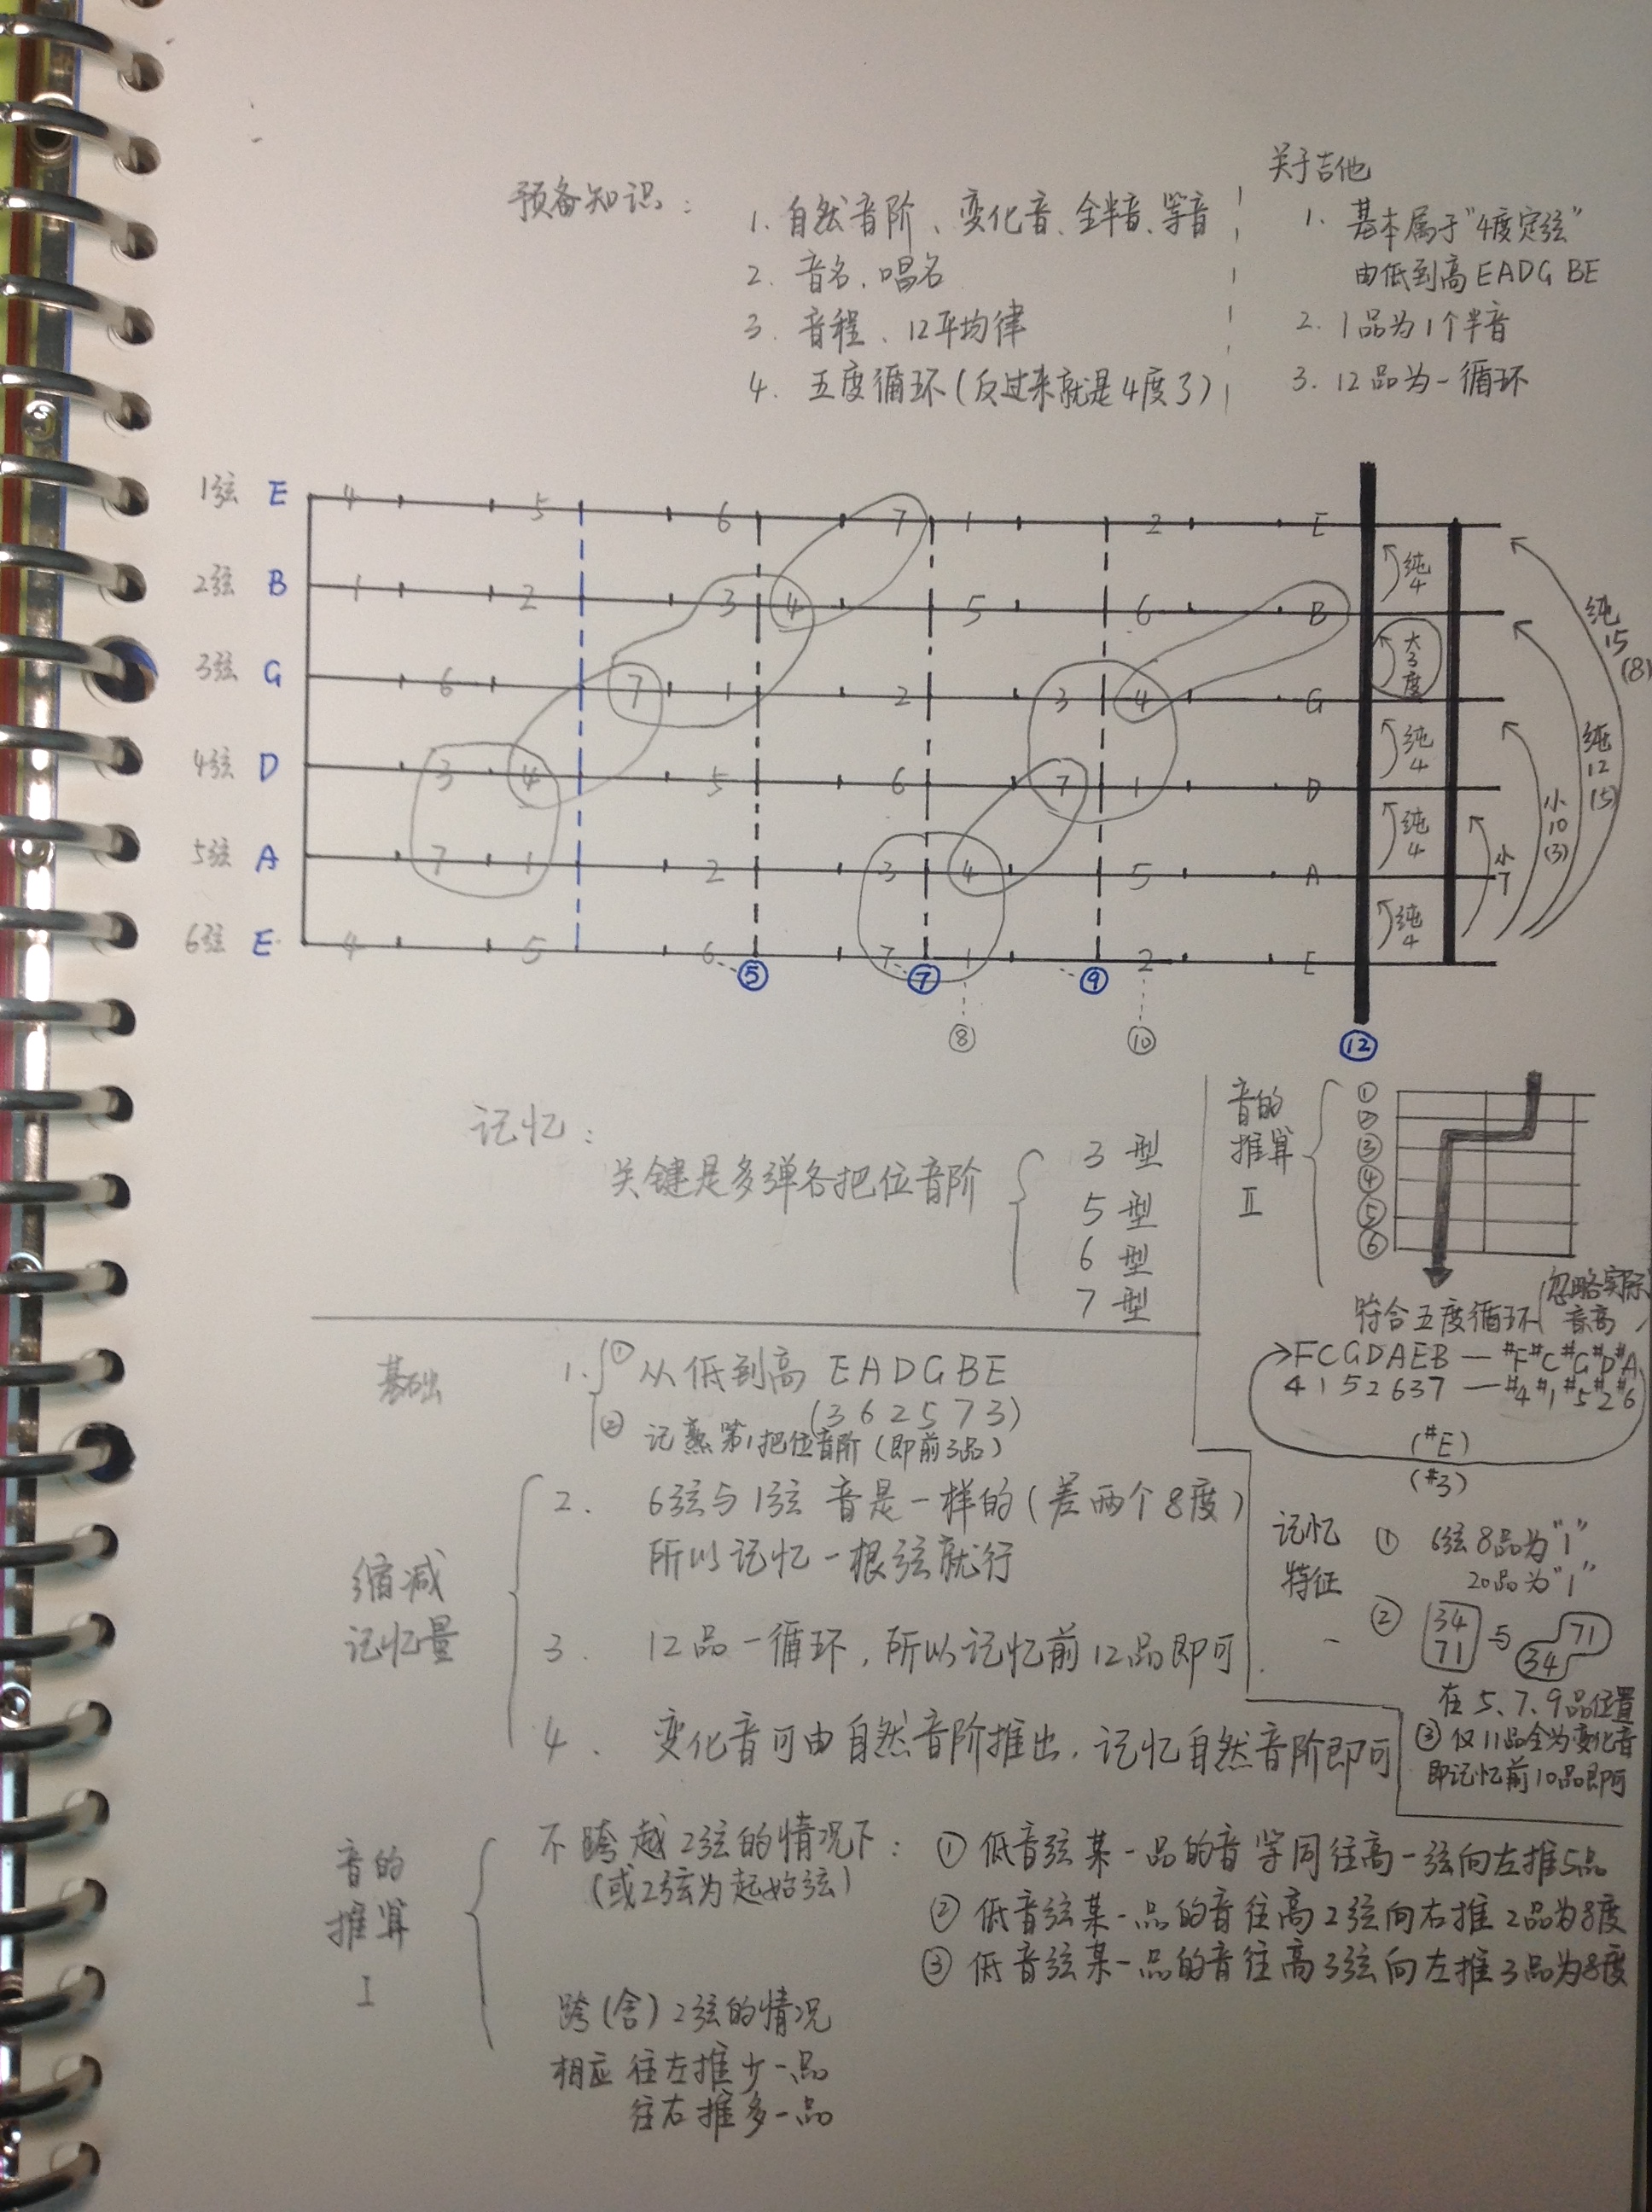 预备知识：
1. 自然音阶、变化音、全半音、等音
2. 音名、唱名
3. 音程、12平均律
4. 五度循环(反过来就是4度了)
关于吉他
1. 基本属于"4度定弦"
由低到高EADGBE
2. 1品为1个半音
3. 12品为一循环
1弦 E 4 5 6 7 1 2 E
2弦 B 1 2 3 4 5 6 B
3弦 G 6 7 1 2 3 4 G
4弦 D 3 4 5 6 7 1 D
5弦 A 7 1 2 3 4 5 A
6弦 E 4 5 6 7 1 2 E
⑤ ⑦ ⑨
⑧ ⑩ ⑫
纯4
大3度
纯4
纯4
纯4
小7
小10(3)
纯12(5)
纯15(8)
记忆：
关键是多弹各把位音阶
3型
5型
6型
7型
音的
推算
II
①
②
③
④
⑤
⑥
符合五度循环(忽略实际音高)
FCGDAEB — #F#C#G#D#A
4152637 — #4#1#5#2#6
(#E)
(#3)
基础
1. ① 从低到高 EADGBE
(362573)
② 记熟第1把位音阶(即前3品)
缩减
记忆量
2. 6弦与1弦音是一样的(差两个8度)
所以记忆一根弦就行
3. 12品一循环，所以记忆前12品即可.
4. 变化音可由自然音阶推出，记忆自然音阶即可
记忆
特征
① 6弦8品为"1"
20品为"1"
② 34
71
与
71
34
在5、7、9品位置
③ 仅11品全为变化音
即记忆前10品即可
音的
推算
I
不跨越2弦的情况下：
(或2弦为起始弦)
① 低音弦某一品的音等同往高一弦向左推5品
② 低音弦某一品的音往高2弦向右推2品为8度
③ 低音弦某一品的音往高3弦向左推3品为8度
跨(含)2弦的情况
相应往左推少一品
往右推多一品